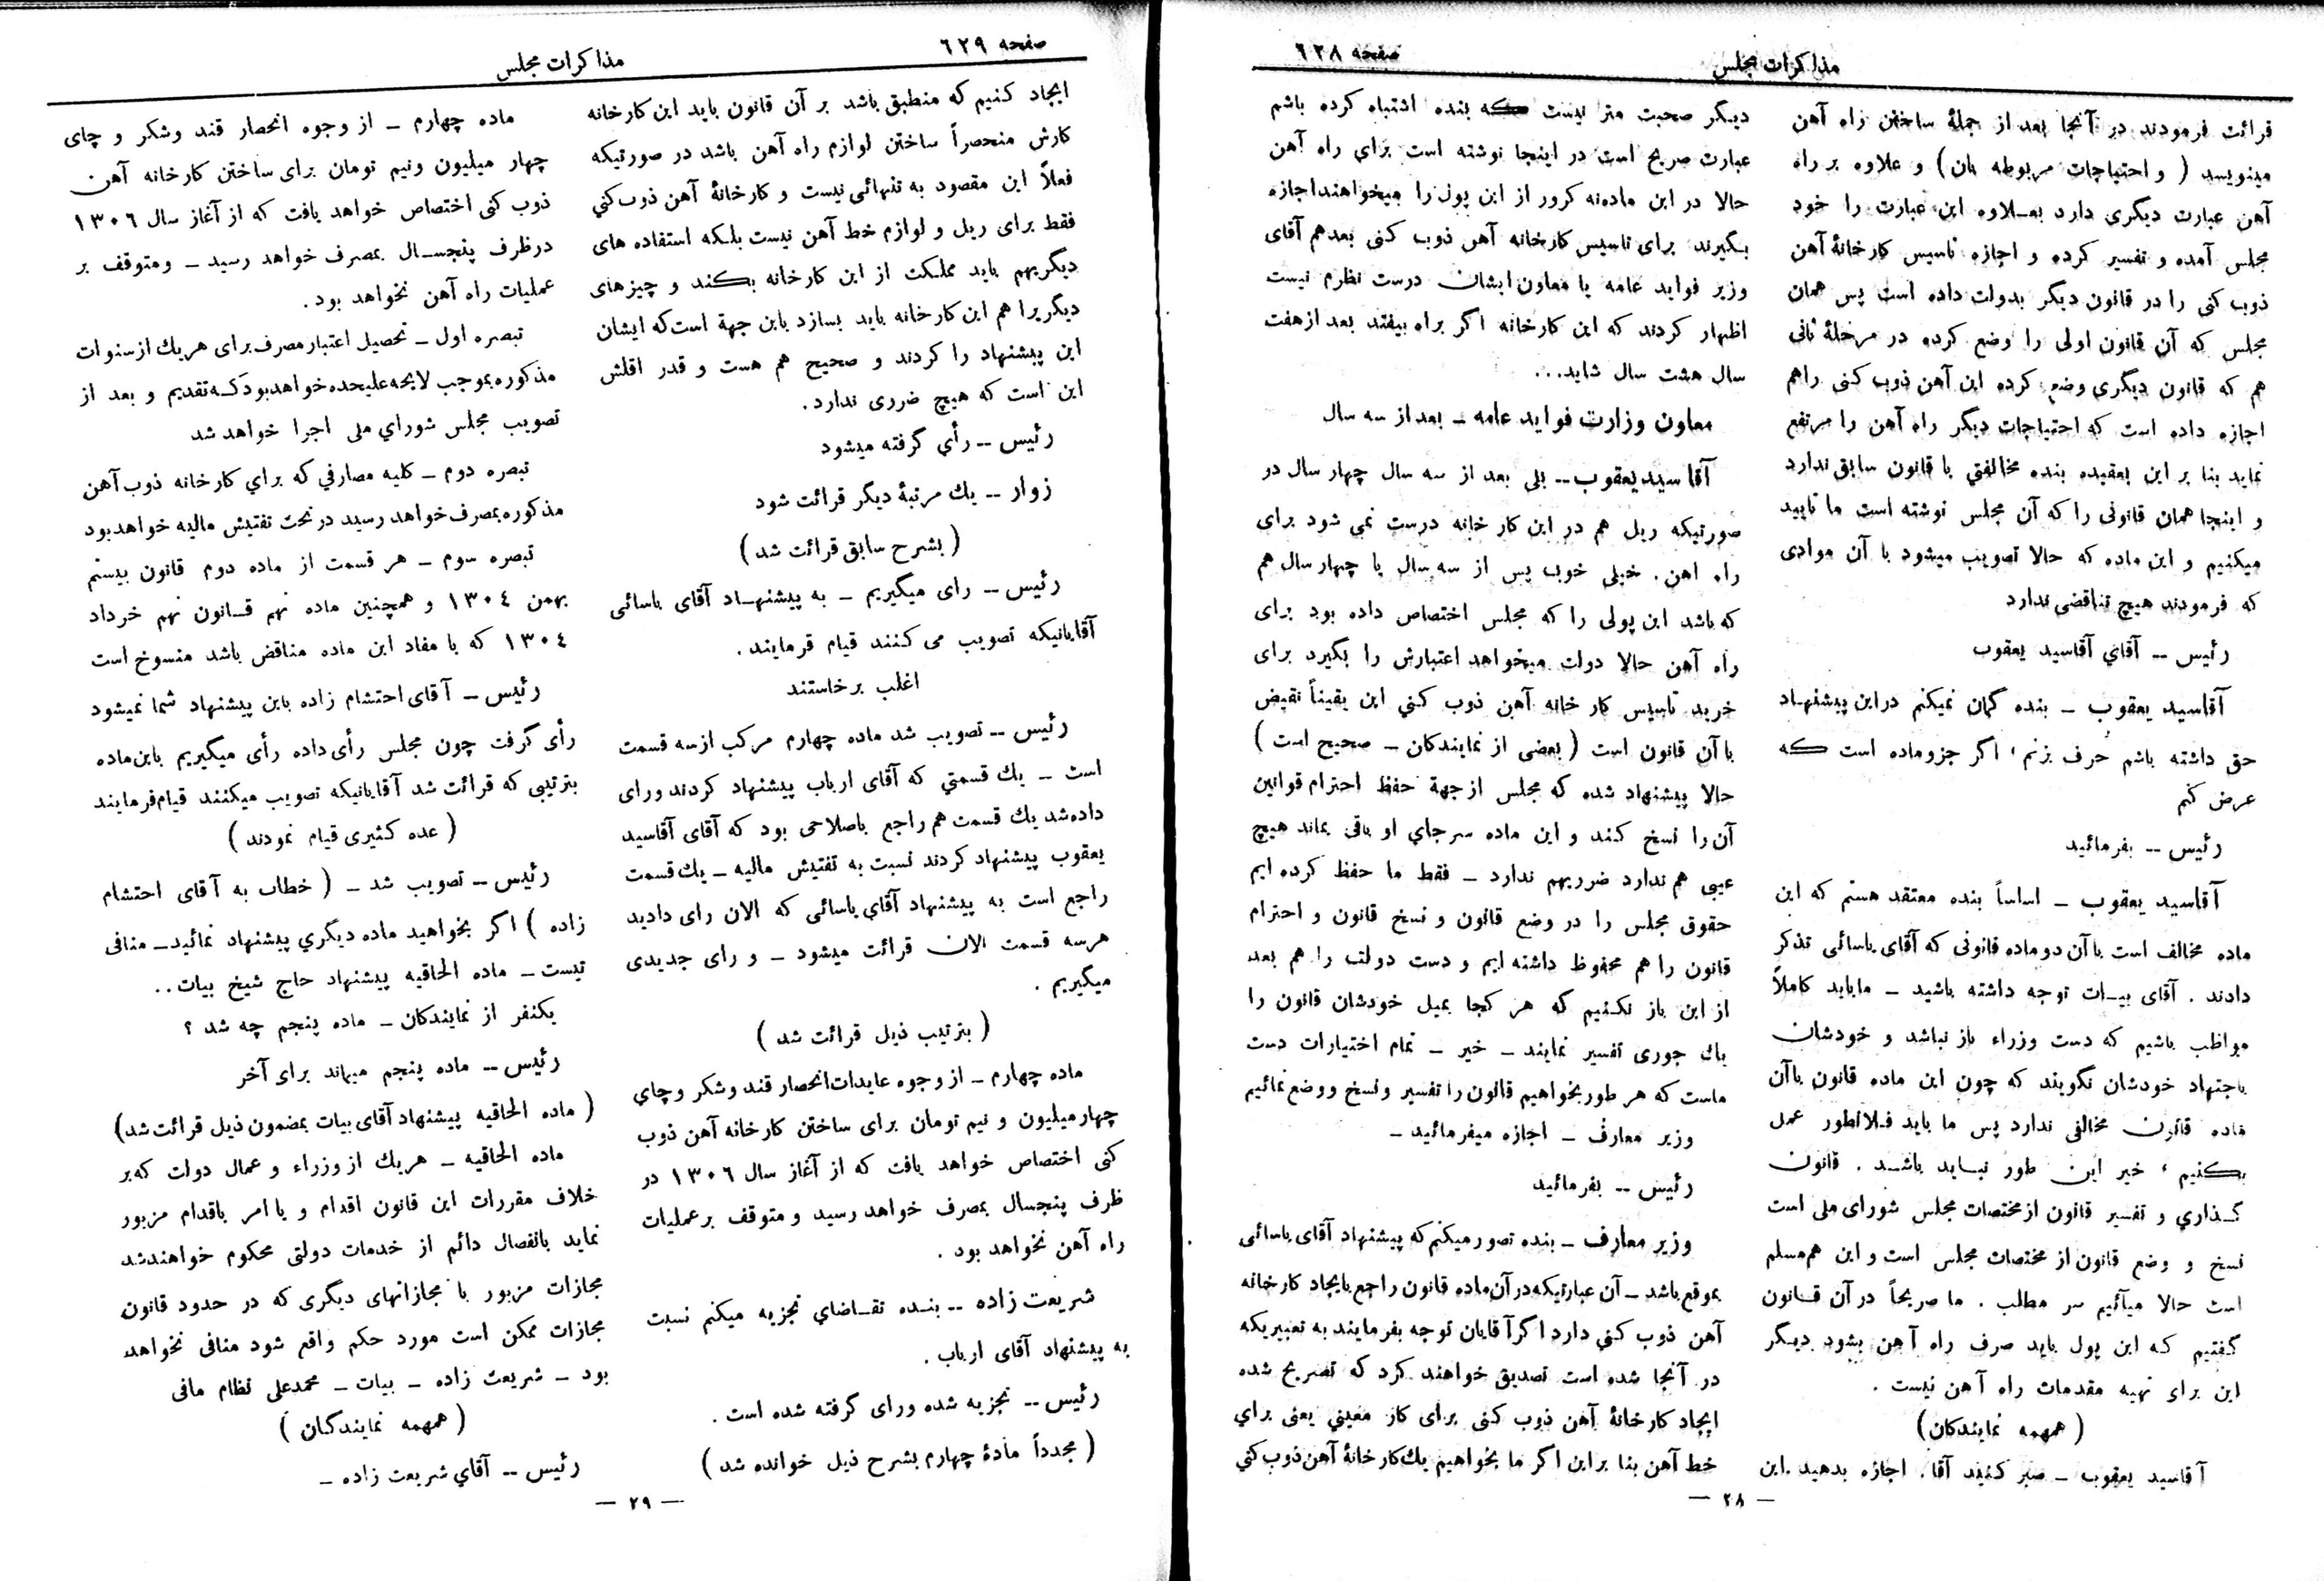 مذاکرات مجلس
صفحه ٦٢٨
قرائت فرمودند در آنجا بعد از جملهٔ ساختن راه آهن
مینویسد ( و احتیاجات مربوطه بان ) و علاوه بر راه
آهن عبارت دیگری دارد بعـلاوه این عبارت را خود
مجلس آمده و تفسیر کرده و اجازه تاسیس کارخانهٔ آهن
ذوب کنی را در قانون دیگر بدولت داده است پس همان
مجلس که آن قانون اولی را وضع کرده در مرحلهٔ ثانی
هم که قانون دیگری وضع کرده این آهن ذوب کنی راهم
اجازه داده است که احتیاجات دیگر راه آهن را مرتفع
نماید بنا بر این بعقیده بنده مخالفتی با قانون سابق ندارد
و اینجا همان قانونی را که آن مجلس نوشته است ما تایید
میکنیم و این ماده که حالا تصویب میشود با آن موادی
که فرمودند هیچ تناقضی ندارد
رئیس -- آقاي آقاسید یعقوب
آقاسید یعقوب ـ بنده گمان نمیکنم دراین پیشنهـاد
حق داشته باشم حرف بزنم ، اگر جزو ماده است که
عرض کنم
رئیس -- بفرمائید
آقاسید یعقوب ـ اساساً بنده معتقد هستم که این
ماده مخالف است با آن دو ماده قانونی که آقای یاسائی تذکر
دادند . آقای بیـات توجه داشته باشید ـ ما باید کاملاً
مواظب باشیم که دست وزراء باز نباشد و خودشان
باجتهاد خودشان نگویند که چون این ماده قانون با آن
ماده قانون مخالفی ندارد پس ما باید فـلانطور عمل
بکنیم ، خیر این طور نبـاید باشـد . قانون
گـذاري و تفسیر قانون از مختصات مجلس شورای ملی است
نسخ و وضع قانون از مختصات مجلس است و این هم مسلم
است حالا میآئیم سر مطلب . ما صریحاً در آن قـانون
گفتیم که این پول باید صرف راه آهن بشود دیگر
این برای تهیه مقدمات راه آهن نیست .
( همهمه نمایندکان )
آقاسید یعقوب ـ صبر کنید آقا . اجازه بدهید . این
دیگر صحبت متر نیست که بنده اشتباه کرده باشم
عبارت صریح است در اینجا نوشته است برای راه آهن
حالا در این ماده نه کرور از این پول را میخواهند اجازه
بگیرند برای تاسیس کارخانه آهن ذوب کنی بعد هم آقای
وزیر فواید عامه یا معاون ایشان درست نظرم نیست
اظهار کردند که این کارخانه اگر براه بیفتد بعد از هفت
سال هشت سال شاید...
معاون وزارت فواید عامه ـ بعد از سه سال
آقا سید یعقوب -- بلی بعد از سه سال چهار سال در
صورتیکه ریل هم در این کار خانه درست نمی شود برای
راه اهن . خیلی خوب پس از سه سال یا چهار سال هم
که باشد این پولی را که مجلس اختصاص داده بود برای
راه آهن حالا دولت میخواهد اعتبارش را بگیرد برای
خرید تاسیس کار خانه آهن ذوب کني این یقیناً نقیض
با آن قانون است ( بعضی از نمایندکان ـ صحیح است )
حالا پیشنهاد شده که مجلس از جهة حفظ احترام قوانین
آن را نسخ کند و این ماده سر جاي او باقی بماند هیچ
عیبی هم ندارد ضرریهم ندارد ـ فقط ما حفظ کرده ایم
حقوق مجلس را در وضع قانون و نسخ قانون و احترام
قانون را هم محفوظ داشته ایم و دست دولت را هم بعد
از این باز نکنیم که هر کجا بمیل خودشان قانون را
یك جوری تفسیر نمایند ـ خیر ـ تمام اختیارات دست
ماست که هر طور بخواهیم قانون را تفسیر ونسخ ووضع نمائیم
وزیر معارف ـ اجازه میفرمائید ـ
رئیس -- بفرمائید
وزیر معارف ـ بنده تصور میکنم که پیشنهاد آقای یاسائی
بموقع باشد ـ آن عبارتیکه در آن ماده قانون راجع بایجاد کارخانه
آهن ذوب کنی دارد اگر آقایان توجه بفرمایند به تعبیریکه
در آنجا شده است تصدیق خواهند کرد که تصریح شده
ایجاد کارخانهٔ آهن ذوب کنی برای کار معینی یعنی براي
خط آهن بنا بر این اگر ما بخواهیم یك کارخانهٔ آهن ذوب کنی
— ٢٨ —
صفحه ٦٢٩
مذاکرات مجلس
ایجاد کنیم که منطبق باشد بر آن قانون باید این کارخانه
کارش منحصراً ساختن لوازم راه آهن باشد در صورتیکه
فعلاً این مقصود به تنهائی نیست و کارخانهٔ آهن ذوب کني
فقط برای ریل و لوازم خط آهن نیست بلکه استفاده های
دیگریهم باید مملکت از این کارخانه بکند و چیزهای
دیگریرا هم این کارخانه باید بسازد باین جهة است که ایشان
این پیشنهاد را کردند و صحیح هم هست و قدر اقلش
این است که هیچ ضرری ندارد .
رئیس -- رأي گرفته میشود
زوار -- یك مرتبهٔ دیگر قرائت شود
( بشرح سابق قرائت شد )
رئیس -- رای میگیریم ـ به پیشنهـاد آقای یاسائی
آقایانیکه تصویب می کنند قیام فرمایند .
اغلب برخاستند
رئیس -- تصویب شد ماده چهارم مرکب از سه قسمت
است ـ یك قسمتي که آقای ارباب پیشنهاد کردند ورای
داده شد یك قسمت هم راجع باصلاحی بود که آقای آقاسید
یعقوب پیشنهاد کردند نسبت به تفتیش مالیه ـ یك قسمت
راجع است به پیشنهاد آقاي یاسائی که الان رای دادید
هر سه قسمت الان قرائت میشود ـ و رای جدیدی
میگیریم .
( بترتیب ذیل قرائت شد )
ماده چهارم ـ از وجوه عایدات انحصار قند وشکر وچاي
چهار میلیون و نیم تومان برای ساختن کارخانه آهن ذوب
کنی اختصاص خواهد یافت که از آغاز سال ١٣٠٦ در
ظرف پنجسال بمصرف خواهد رسید و متوقف بر عملیات
راه آهن نخواهد بود .
شریعت زاده -- بنـده تقـاضاي تجزیه میکنم نسبت
به پیشنهاد آقای ارباب .
رئیس -- تجزیه شده ورای گرفته شده است .
( مجدداً مادهٔ چهارم بشرح ذیل خوانده شد )
ماده چهارم ـ از وجوه انحصار قند وشکر و چای
چهار میلیون ونیم تومان برای ساختن کارخانه آهن
ذوب کنی اختصاص خواهد یافت که از آغاز سال ١٣٠٦
در ظرف پنجسـال بمصرف خواهد رسید ـ ومتوقف بر
عملیات راه آهن نخواهد بود .
تبصره اول ـ تحصیل اعتبار مصرف برای هر یك از سنوات
مذکوره بموجب لایحه علیحده خواهد بود که تقدیم و بعد از
تصویب مجلس شوراي ملی اجرا خواهد شد
تبصره دوم ـ کلیه مصارفي که براي کارخانه ذوب آهن
مذکوره بمصرف خواهد رسید در تحت تفتیش مالیه خواهد بود
تبصره سوم ـ هر قسمت از ماده دوم قانون بیستم
بهمن ١٣٠٤ و همچنین ماده نهم قـانون نهم خرداد
١٣٠٤ که با مفاد این ماده مناقض باشد منسوخ است
رئیس ـ آقای احتشام زاده باین پیشنهاد شما نمیشود
رأی گرفت چون مجلس رأی داده رأی میگیریم باین ماده
بترتیبی که قرائت شد آقایانیکه تصویب میکنند قیام فرمایند
( عده کثیری قیام نمودند )
رئیس -- تصویب شد ـ ( خطاب به آقای احتشام
زاده ) اگر بخواهید ماده دیگري پیشنهاد نمائید ـ منافی
نیست ـ ماده الحاقیه پیشنهاد حاج شیخ بیات ..
یکنفر از نمایندکان ـ ماده پنجم چه شد ؟
رئیس -- ماده پنجم میماند برای آخر
( ماده الحاقیه پیشنهاد آقای بیات بمضمون ذیل قرائت شد )
ماده الحاقیه ـ هر یك از وزراء و عمال دولت که بر
خلاف مقررات این قانون اقدام و یا امر باقدام مزبور
نماید بانفصال دائم از خدمات دولتی محکوم خواهند شد
مجازات مزبور با مجازاتهای دیگری که در حدود قانون
مجازات ممکن است مورد حکم واقع شود منافی نخواهد
بود ـ شریعت زاده ـ بیات ـ محمدعلی نظام مافی
( همهمه نمایندکان )
رئیس -- آقاي شریعت زاده ـ
— ٢٩ —